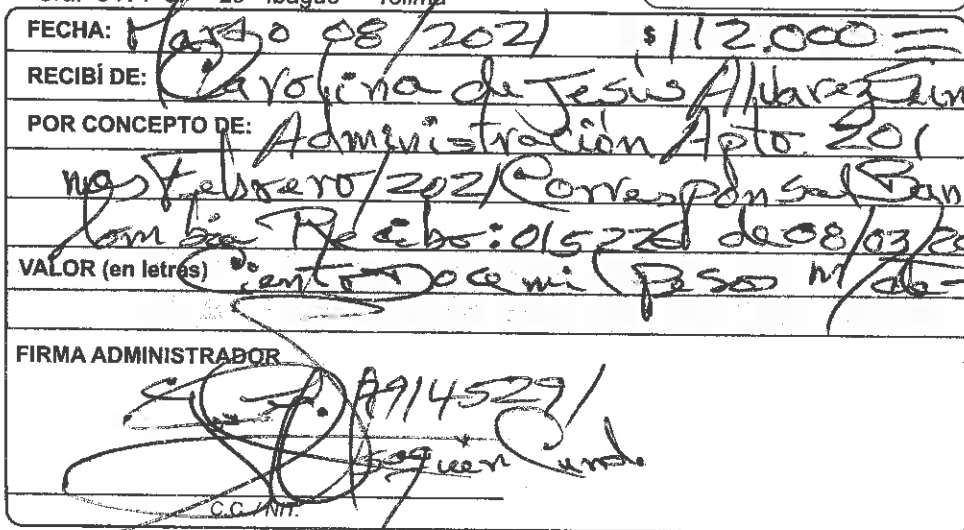 Ibagué Tolima
FECHA: Marzo 08/2021 $112.000=
RECIBÍ DE: Carolina de Jesús Alvarez
POR CONCEPTO DE: Administración Apto 201
mes Febrero/2021 Corresponsal Ban
Recibo: de 08/03/20
VALOR (en letras) Ciento Doce mil Pesos M/cte
FIRMA ADMINISTRADOR
C.C. / NIT.